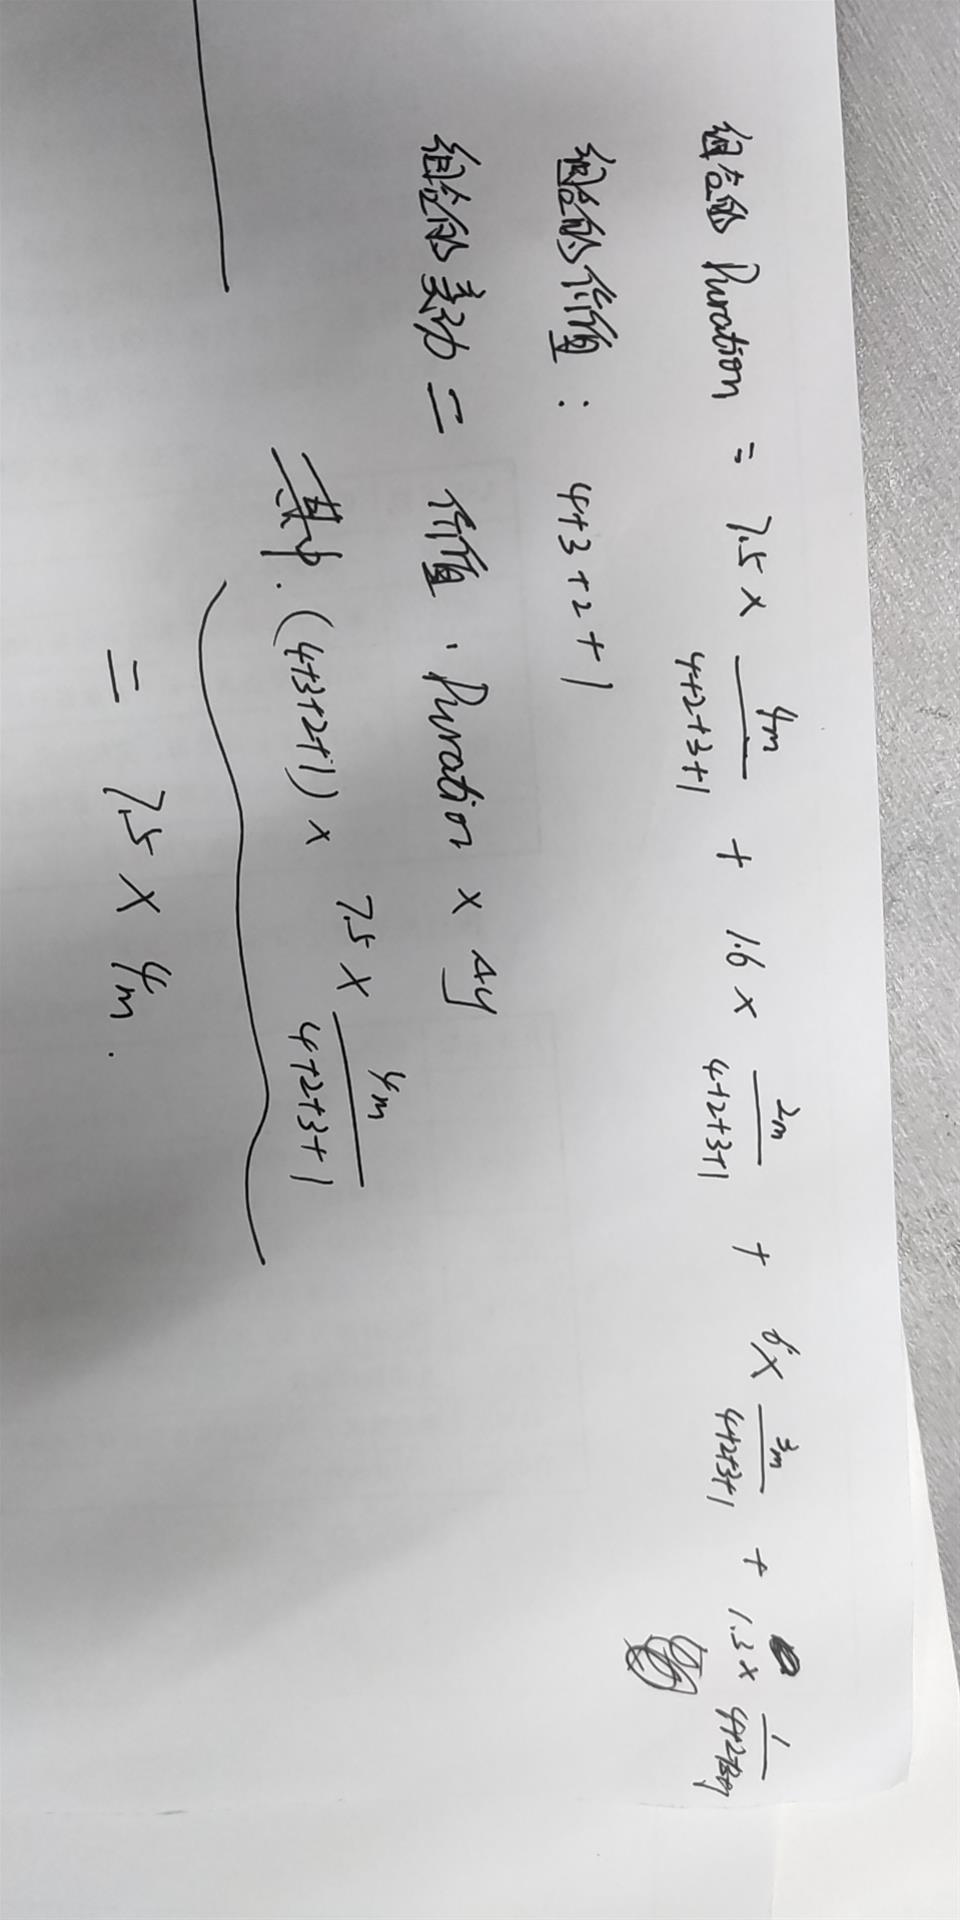 组合的 Duration = 7.5 × 4m/(4+2+3+1) + 1.6 × 2m/(4+2+3+1) + 6 × 3m/(4+2+3+1) + 1.3 × 1/(4+2+3+1)
组合的价值: 4+3+2+1
组合的变动 = 价值 · Duration × Δy
其中. (4+3+2+1) × 7.5 × 4m/(4+2+3+1)
= 7.5 × 4m.